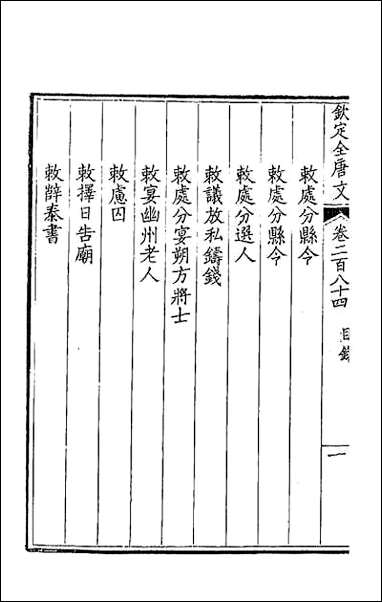 欽定全唐文 卷二百八十四 目錄 一
敕處分縣令
敕處分縣令
敕處分選人
敕議放私鑄錢
敕處分宴朔方將士
敕宴幽州老人
敕慮囚
敕擇日告廟
敕辥泰書